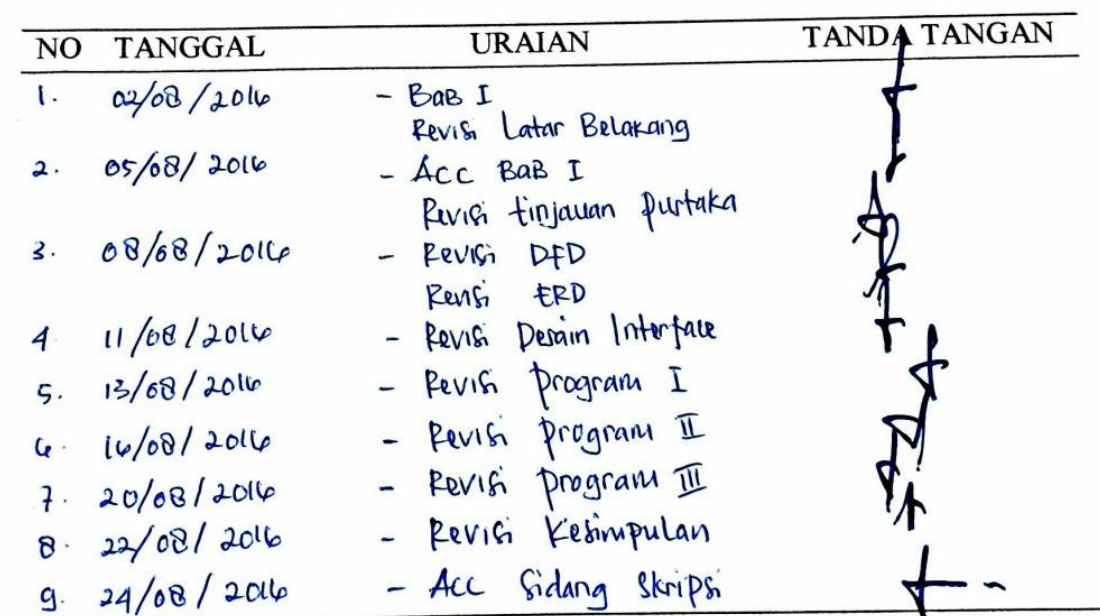 NO TANGGAL URAIAN TANDA TANGAN
1. 02/08/2016 - BaB I
Revisi Latar Belakang
2. 05/08/2016 - Acc BaB I
Revisi tinjauan Pustaka
3. 08/08/2016 - Revisi DFD
Revisi ERD
4 11/08/2016 - Revisi Desain Interface
5. 13/08/2016 - Revisi Program I
6. 16/08/2016 - Revisi program II
7. 20/08/2016 - Revisi program III
8. 22/08/2016 - Revisi Kesimpulan
9. 24/08/2016 - Acc Sidang Skripsi